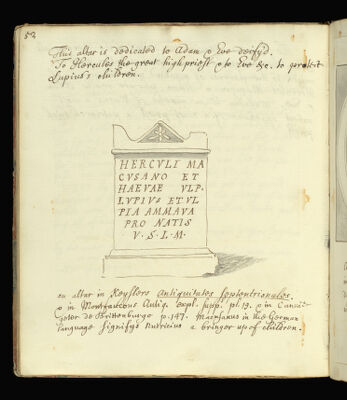 52
This altar is dedicated to Adam & Eve deify'd.
To Hercules the great high priest & to Eve &c. to protect
Lupius's children.
HERCVLI MA
CVSANO ET
HAEVAE VLP.
LVPIVS ET VL
PIA AMMAVA
PRO NATIS
V. S. L. M.
an altar in Keyslers Antiquitates septentrionales.
& in Montfaucons Antiq. Expl. supp. pl. 19. & in
de Brittenburgo p. 147. in the German
language signifys Nutricius a bringer up of children.